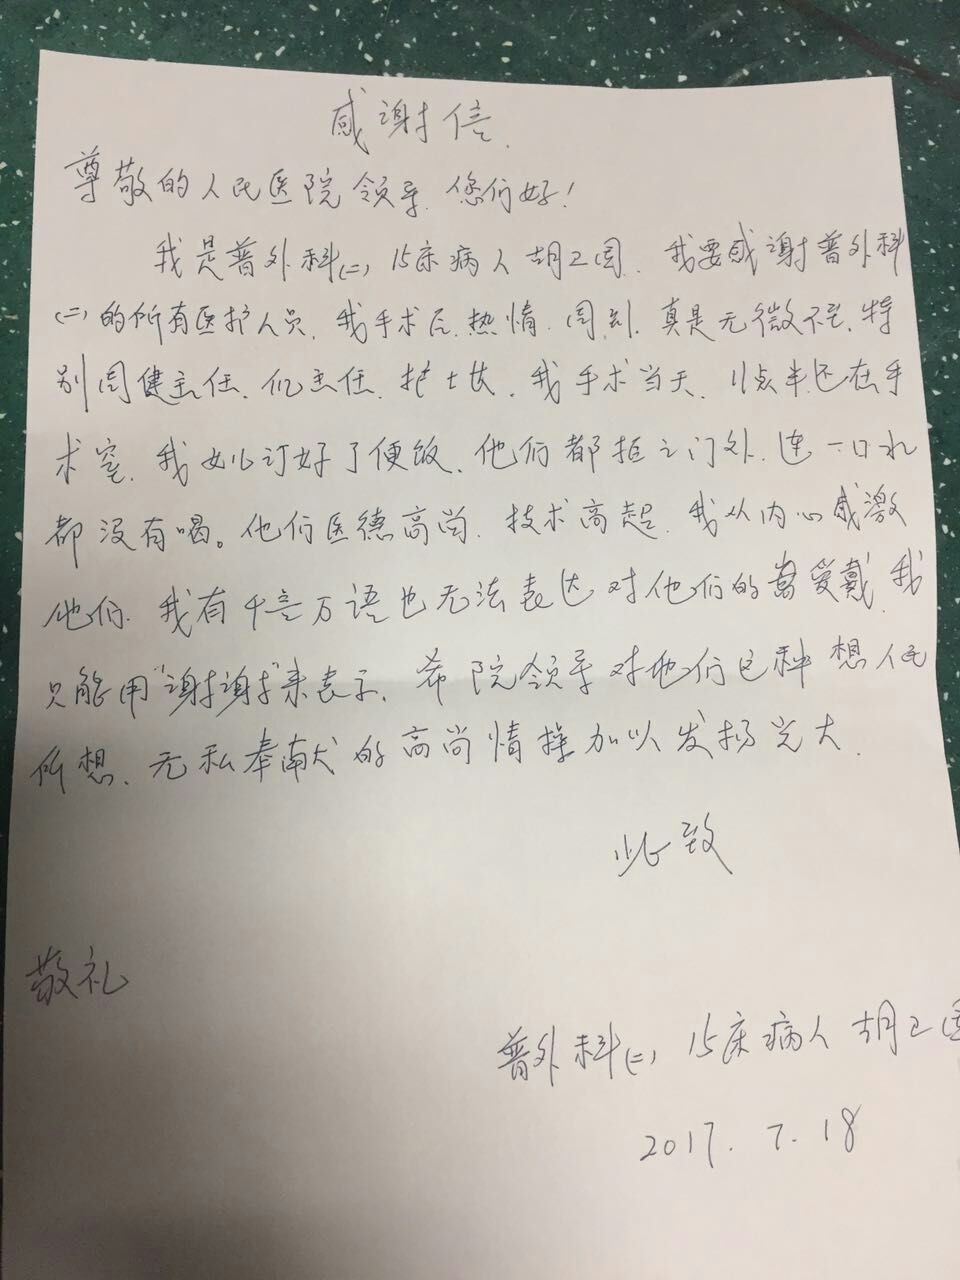 感谢信.
尊敬的人民医院领导.您们好!
我是普外科(二)15床病人胡卫国.我要感谢普外科
(二)的所有医护人员,我手术后.热情.周到.真是无微不至,特
别周健主任、主任、护士,我手术当天、11点半还在手
术室,我女儿订好了便饭、他们都拒之门外.连一口水
都没有喝。他们医德高尚.技术高超.我从内心感激
他们.我有千言万语也无法表达对他们的爱戴,我
只能用"谢谢"来表示,希院领导对他们这种想人民
所想、无私奉献的高尚情操加以发扬光大.
此致
敬礼
普外科(二)15床病人胡卫国
2017.7.18